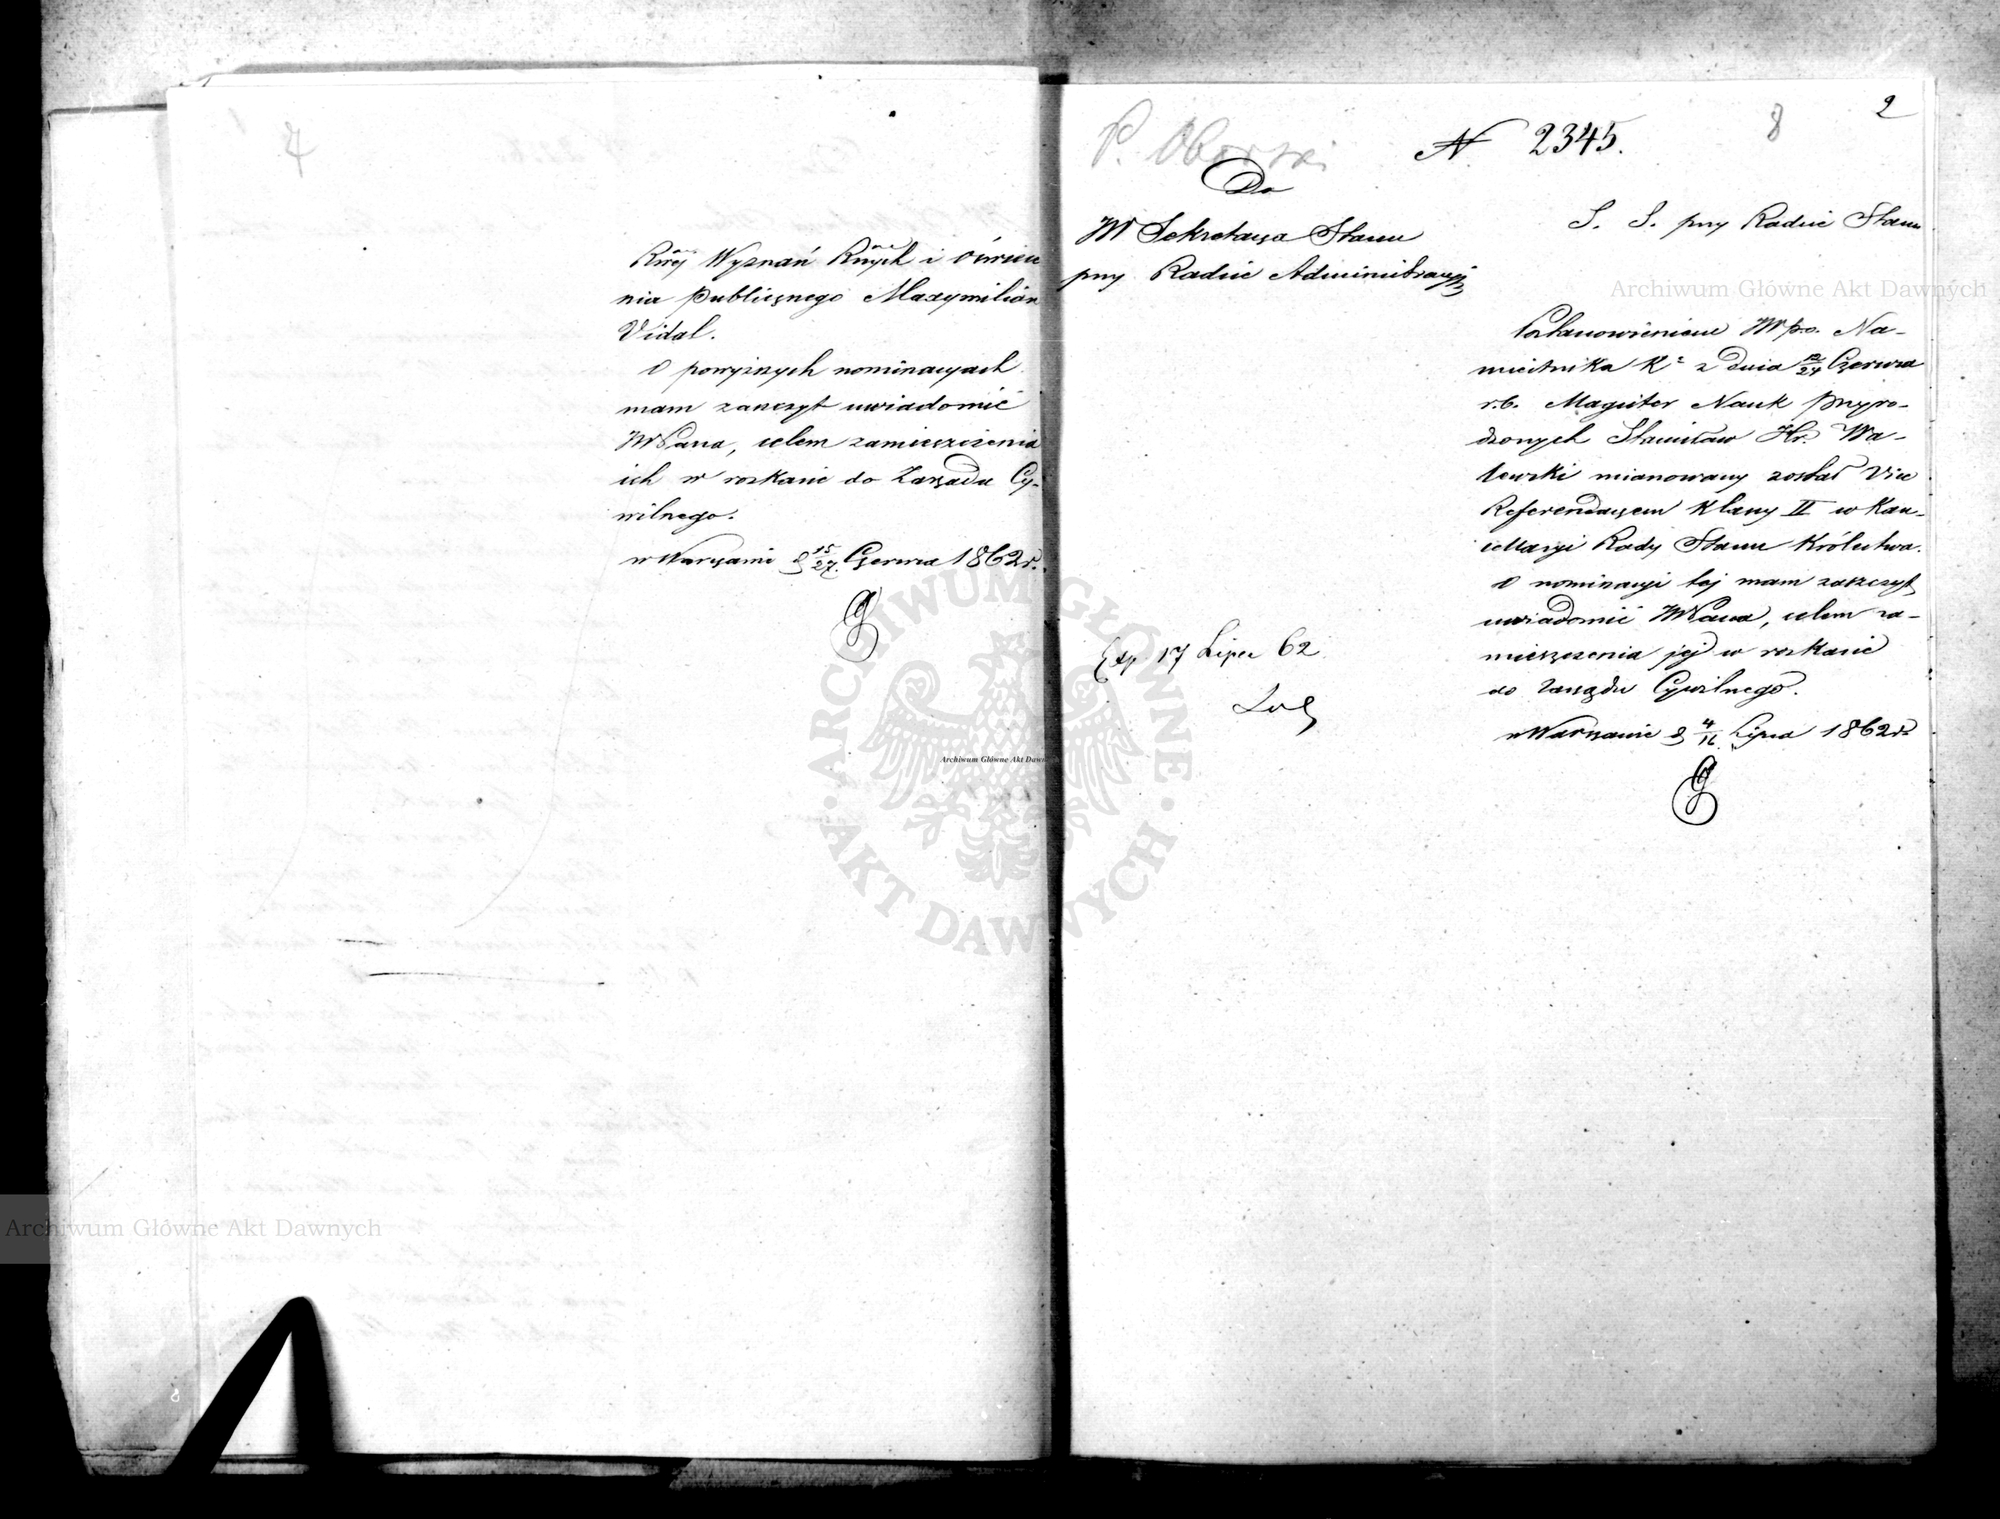 7
Rŵej Wyznań Rŵych i Oświece
nia Publicznego Maxymilian
Vidal.
O powyższych nominacyach
mam zaszczyt uwiadomić
JWPana, celem zamieszczenia
ich w rozkazie do Zarządu Cy-
wilnego.
w Warszawie d 15/27 Czerwca 1862 r.
P. Oborski
N 2345.
8
2
Do
JW Sekretarza Stanu
przy Radzie Administracyj
S. S. przy Radzie Stanu
Postanowieniem JW p.o. Na-
miestnika K z dnia 12/24 Czerwca
r.b. Magister Nauk Przyro-
dzonych Stanisław Hr. Wa-
lewski mianowany został Vice
Referendarzem Klassy II w Kan-
cellaryi Rady Stanu Królestwa.
O nominacyi tej mam zaszczyt
uwiadomić JWPana, celem za-
mieszczenia jej w rozkazie
do Zarządu Cywilnego.
w Warszawie d 4/16 Lipca 1862 r.
Exp 17 Lipca 62
Archiwum Główne Akt Dawnych
ARCHIWUM GŁÓWNE
AKT DAWNYCH
Archiwum Główne Akt Dawn
Archiwum Główne Akt Dawnych
8